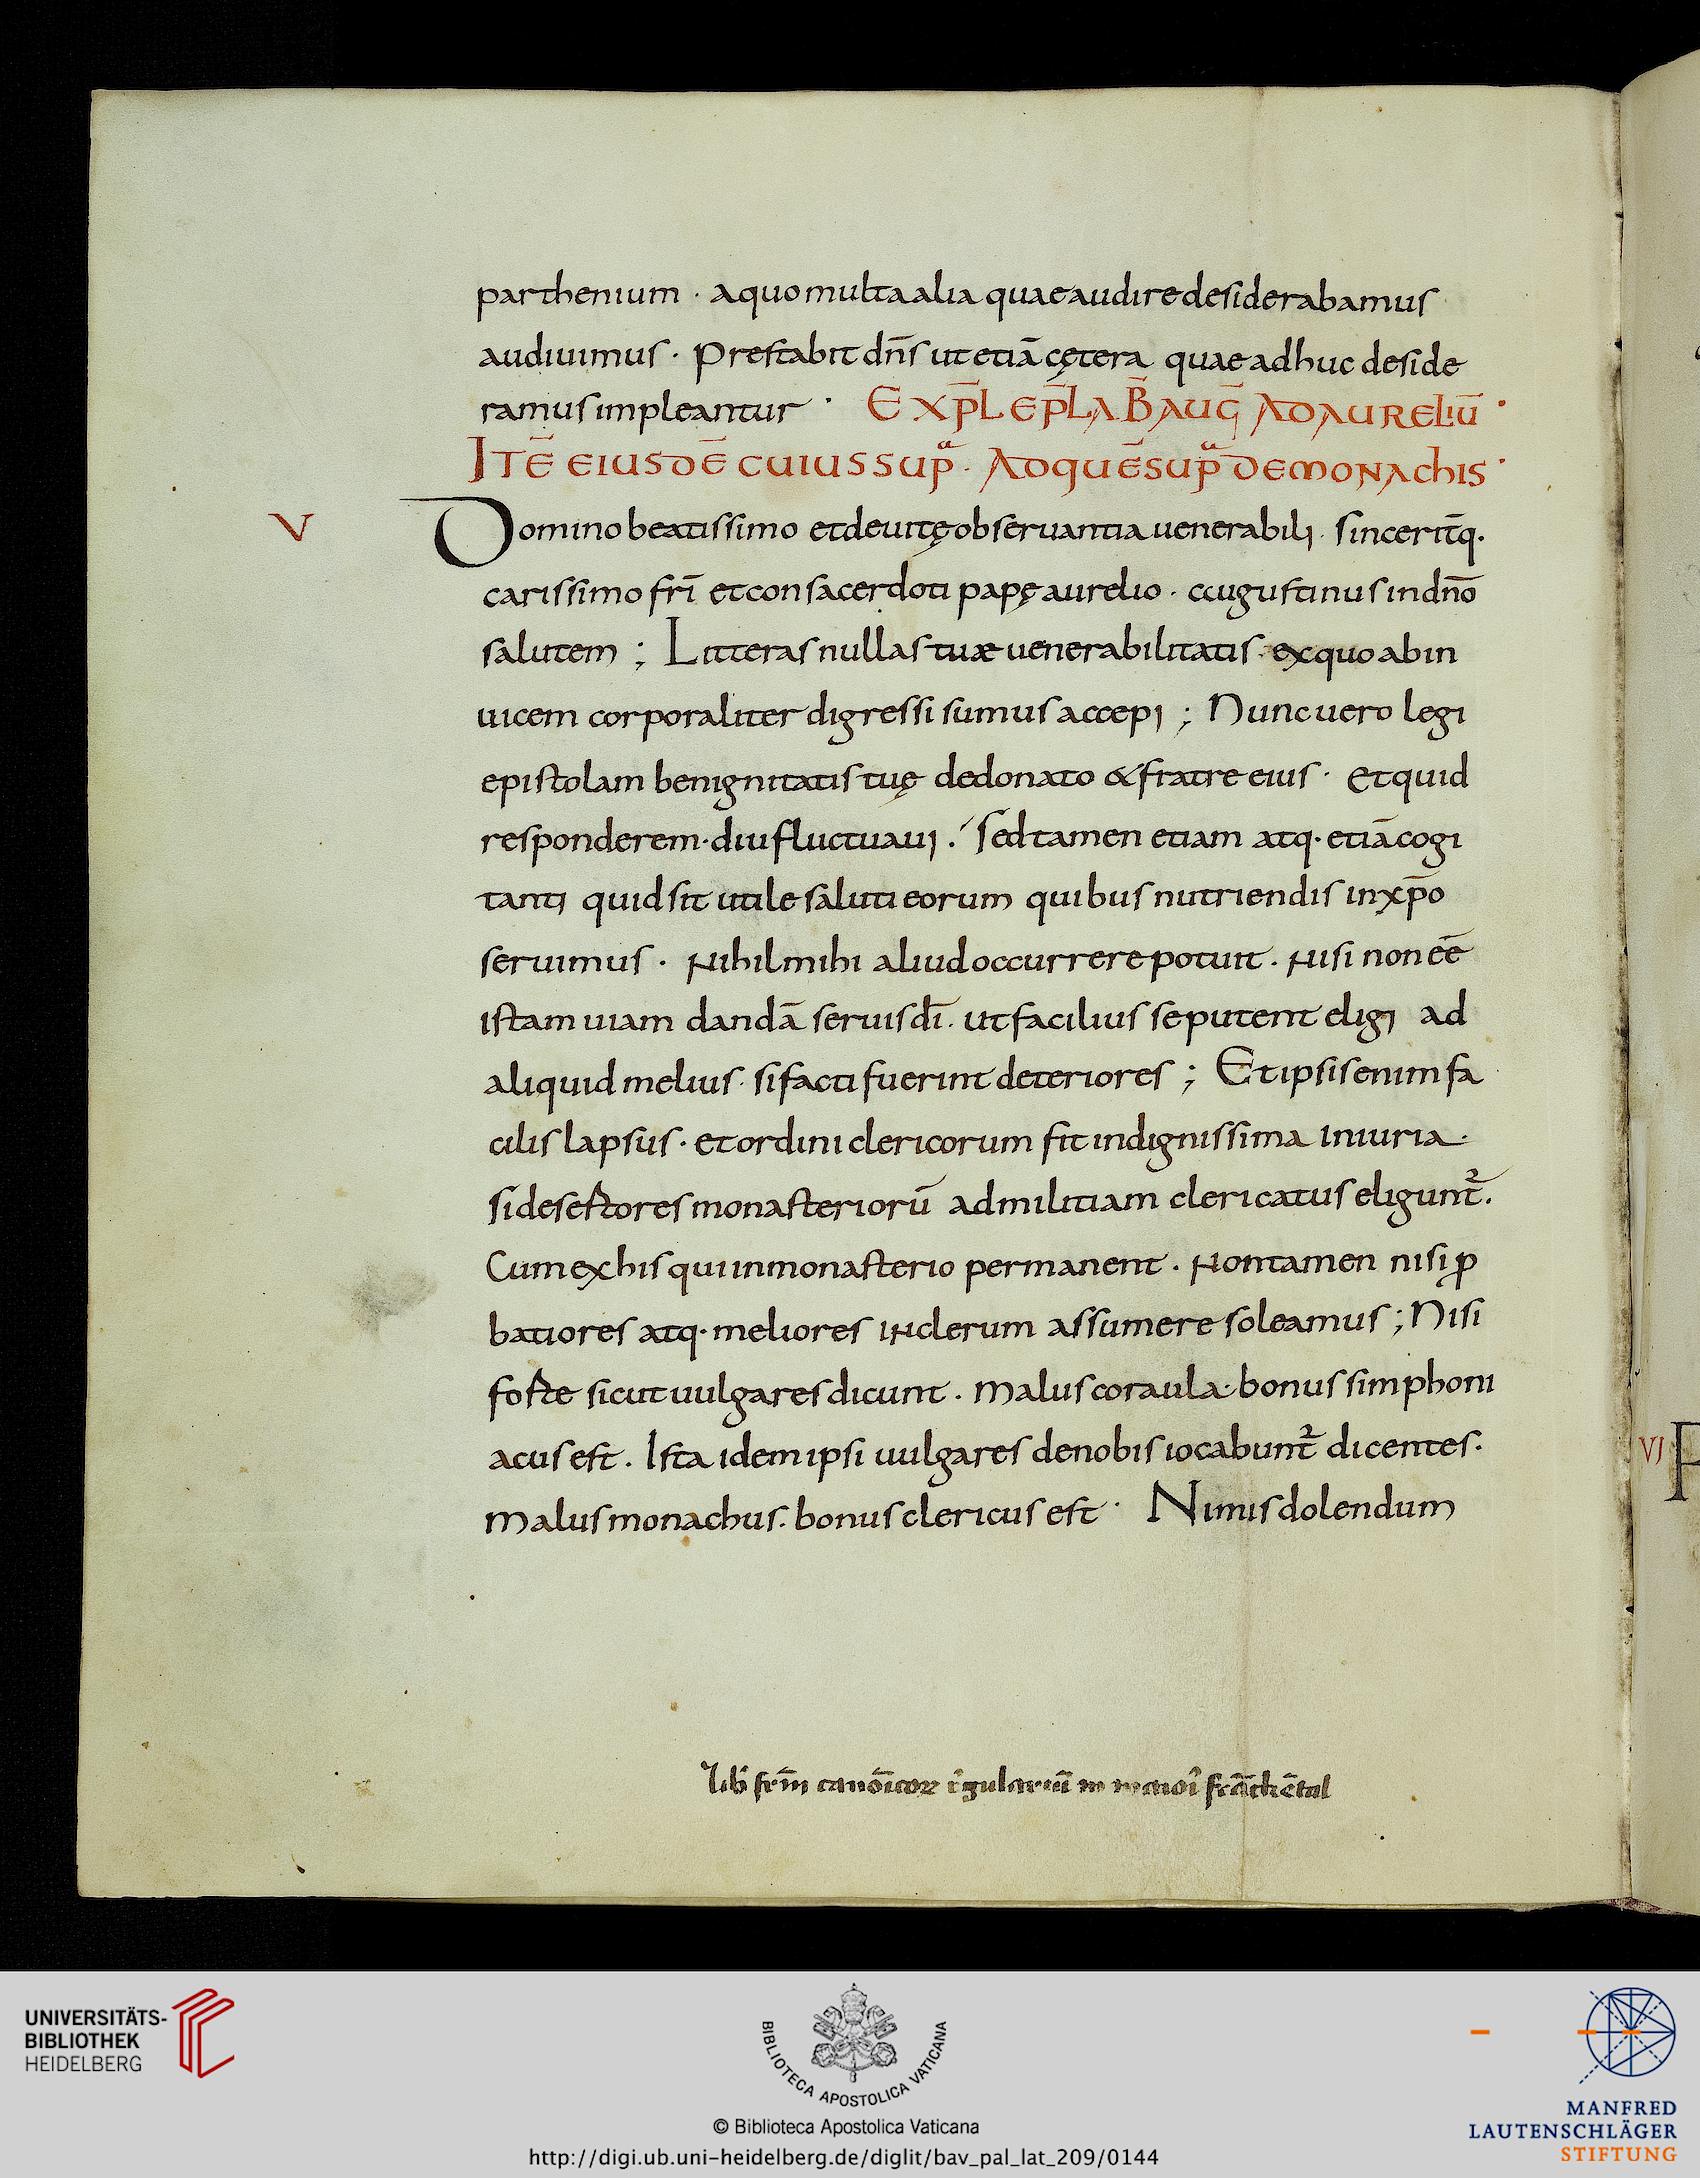 parthenium · a quo multa alia quae audire desiderabamus
audiuimus · Prestabit dn̄s ut etiā cętera quae adhuc deside
ramus impleantur · EXPL̄ EPL̄A B̄ AUḠ AD AURELIŪ ·
ITĒ EIUSDĒ CUIUS SUPᵃ · AD QUĒ SUPᵃ DE MONACHIS ·
V Domino beatissimo et de uitę obseruantia uenerabili · sinceritq̄·
carissimo frī et consacerdoti papę aurelio · augustinus in dn̄o
salutem ; Litteras nullas tuæ uenerabilitatis · ex quo ab in
uicem corporaliter digressi sumus accepi ; Nunc uero legi
epistolam benignitatis tuę de donato & fratre eius · Et quid
responderem · diu fluctuaui . Sed tamen etiam atq· etiā cogi
tanti quid sit utile saluti eorum quibus nutriendis in xp̄o
seruimus · Nihil mihi aliud occurrere potuit . Nisi non eē
istam uiam dandā seruis dī · ut facilius se putent eligi ad
aliquid melius · si facti fuerint deteriores ; Et ipsis enim fa
cilis lapsus · et ordini clericorum fit indignissima iniuria ·
si desertores monasteriorū ad militiam clericatus eligunt᷒ .
Cum ex his qui in monasterio permanent . Non tamen nisi ꝓ
batiores atq· meliores in clerum assumere soleamus ; Nisi
forte sicut uulgares dicunt . malus coraula · bonus simphoni
acus est . Ista idem ipsi uulgares de nobis iocabunt᷒ dicentes ·
malus monachus . bonus clericus est · Nimis dolendum
Lib̄ frm̄ canōicoꝝ r̄gulariū in maiori franckētal
VI
UNIVERSITÄTS-
BIBLIOTHEK
HEIDELBERG
BIBLIOTECA APOSTOLICA VATICANA
© Biblioteca Apostolica Vaticana
http://digi.ub.uni-heidelberg.de/diglit/bav_pal_lat_209/0144
MANFRED
LAUTENSCHLÄGER
STIFTUNG